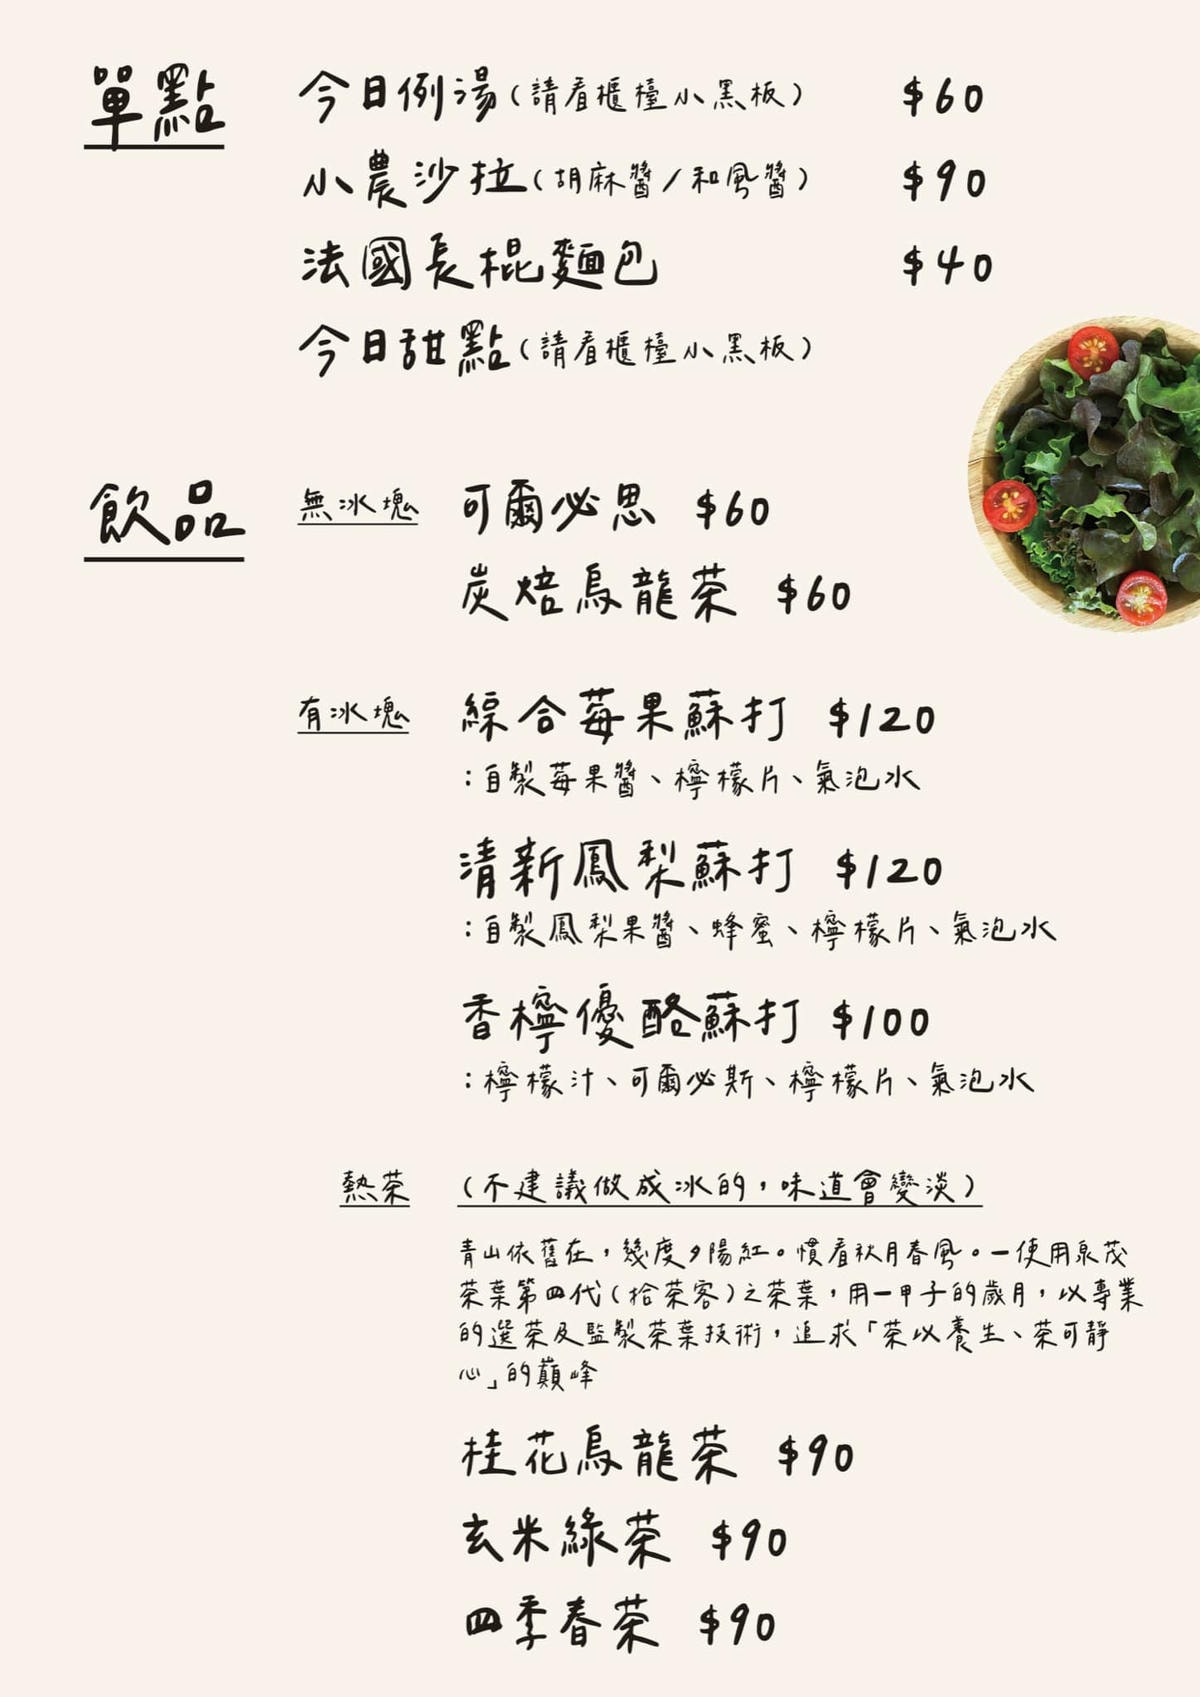 單點
今日例湯(請看櫃檯小黑板) $60
小農沙拉(胡麻醬/和風醬) $90
法國長棍麵包 $40
今日甜點(請看櫃檯小黑板)
飲品
無冰塊 可爾必思 $60
炭焙烏龍茶 $60
有冰塊 綜合莓果蘇打 $120
:自製莓果醬、檸檬片、氣泡水
清新鳳梨蘇打 $120
:自製鳳梨果醬、蜂蜜、檸檬片、氣泡水
香檸優酪蘇打 $100
:檸檬汁、可爾必斯、檸檬片、氣泡水
熱茶 (不建議做成冰的,味道會變淡)
青山依舊在,幾度夕陽紅。慣看秋月春風。一使用泉茂
茶葉第四代(拾茶客)之茶葉,用一甲子的歲月,以專業
的選茶及監製茶葉技術,追求「茶以養生、茶可靜
心」的巔峰
桂花烏龍茶 $90
玄米綠茶 $90
四季春茶 $90